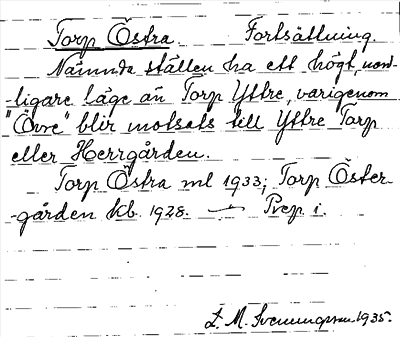 Torp Östra. Fortsättning.
Nämnda ställen ha ett högt, nord-
-ligare läge än Torp Yttre, varigenom
"Övre" blir motsats till Yttre Torp
eller Herrgården.
Torp Östra ml 1933; Torp Öster-
-gården kb. 1928. — Prep i.
L. M. Svenungsson 1935.